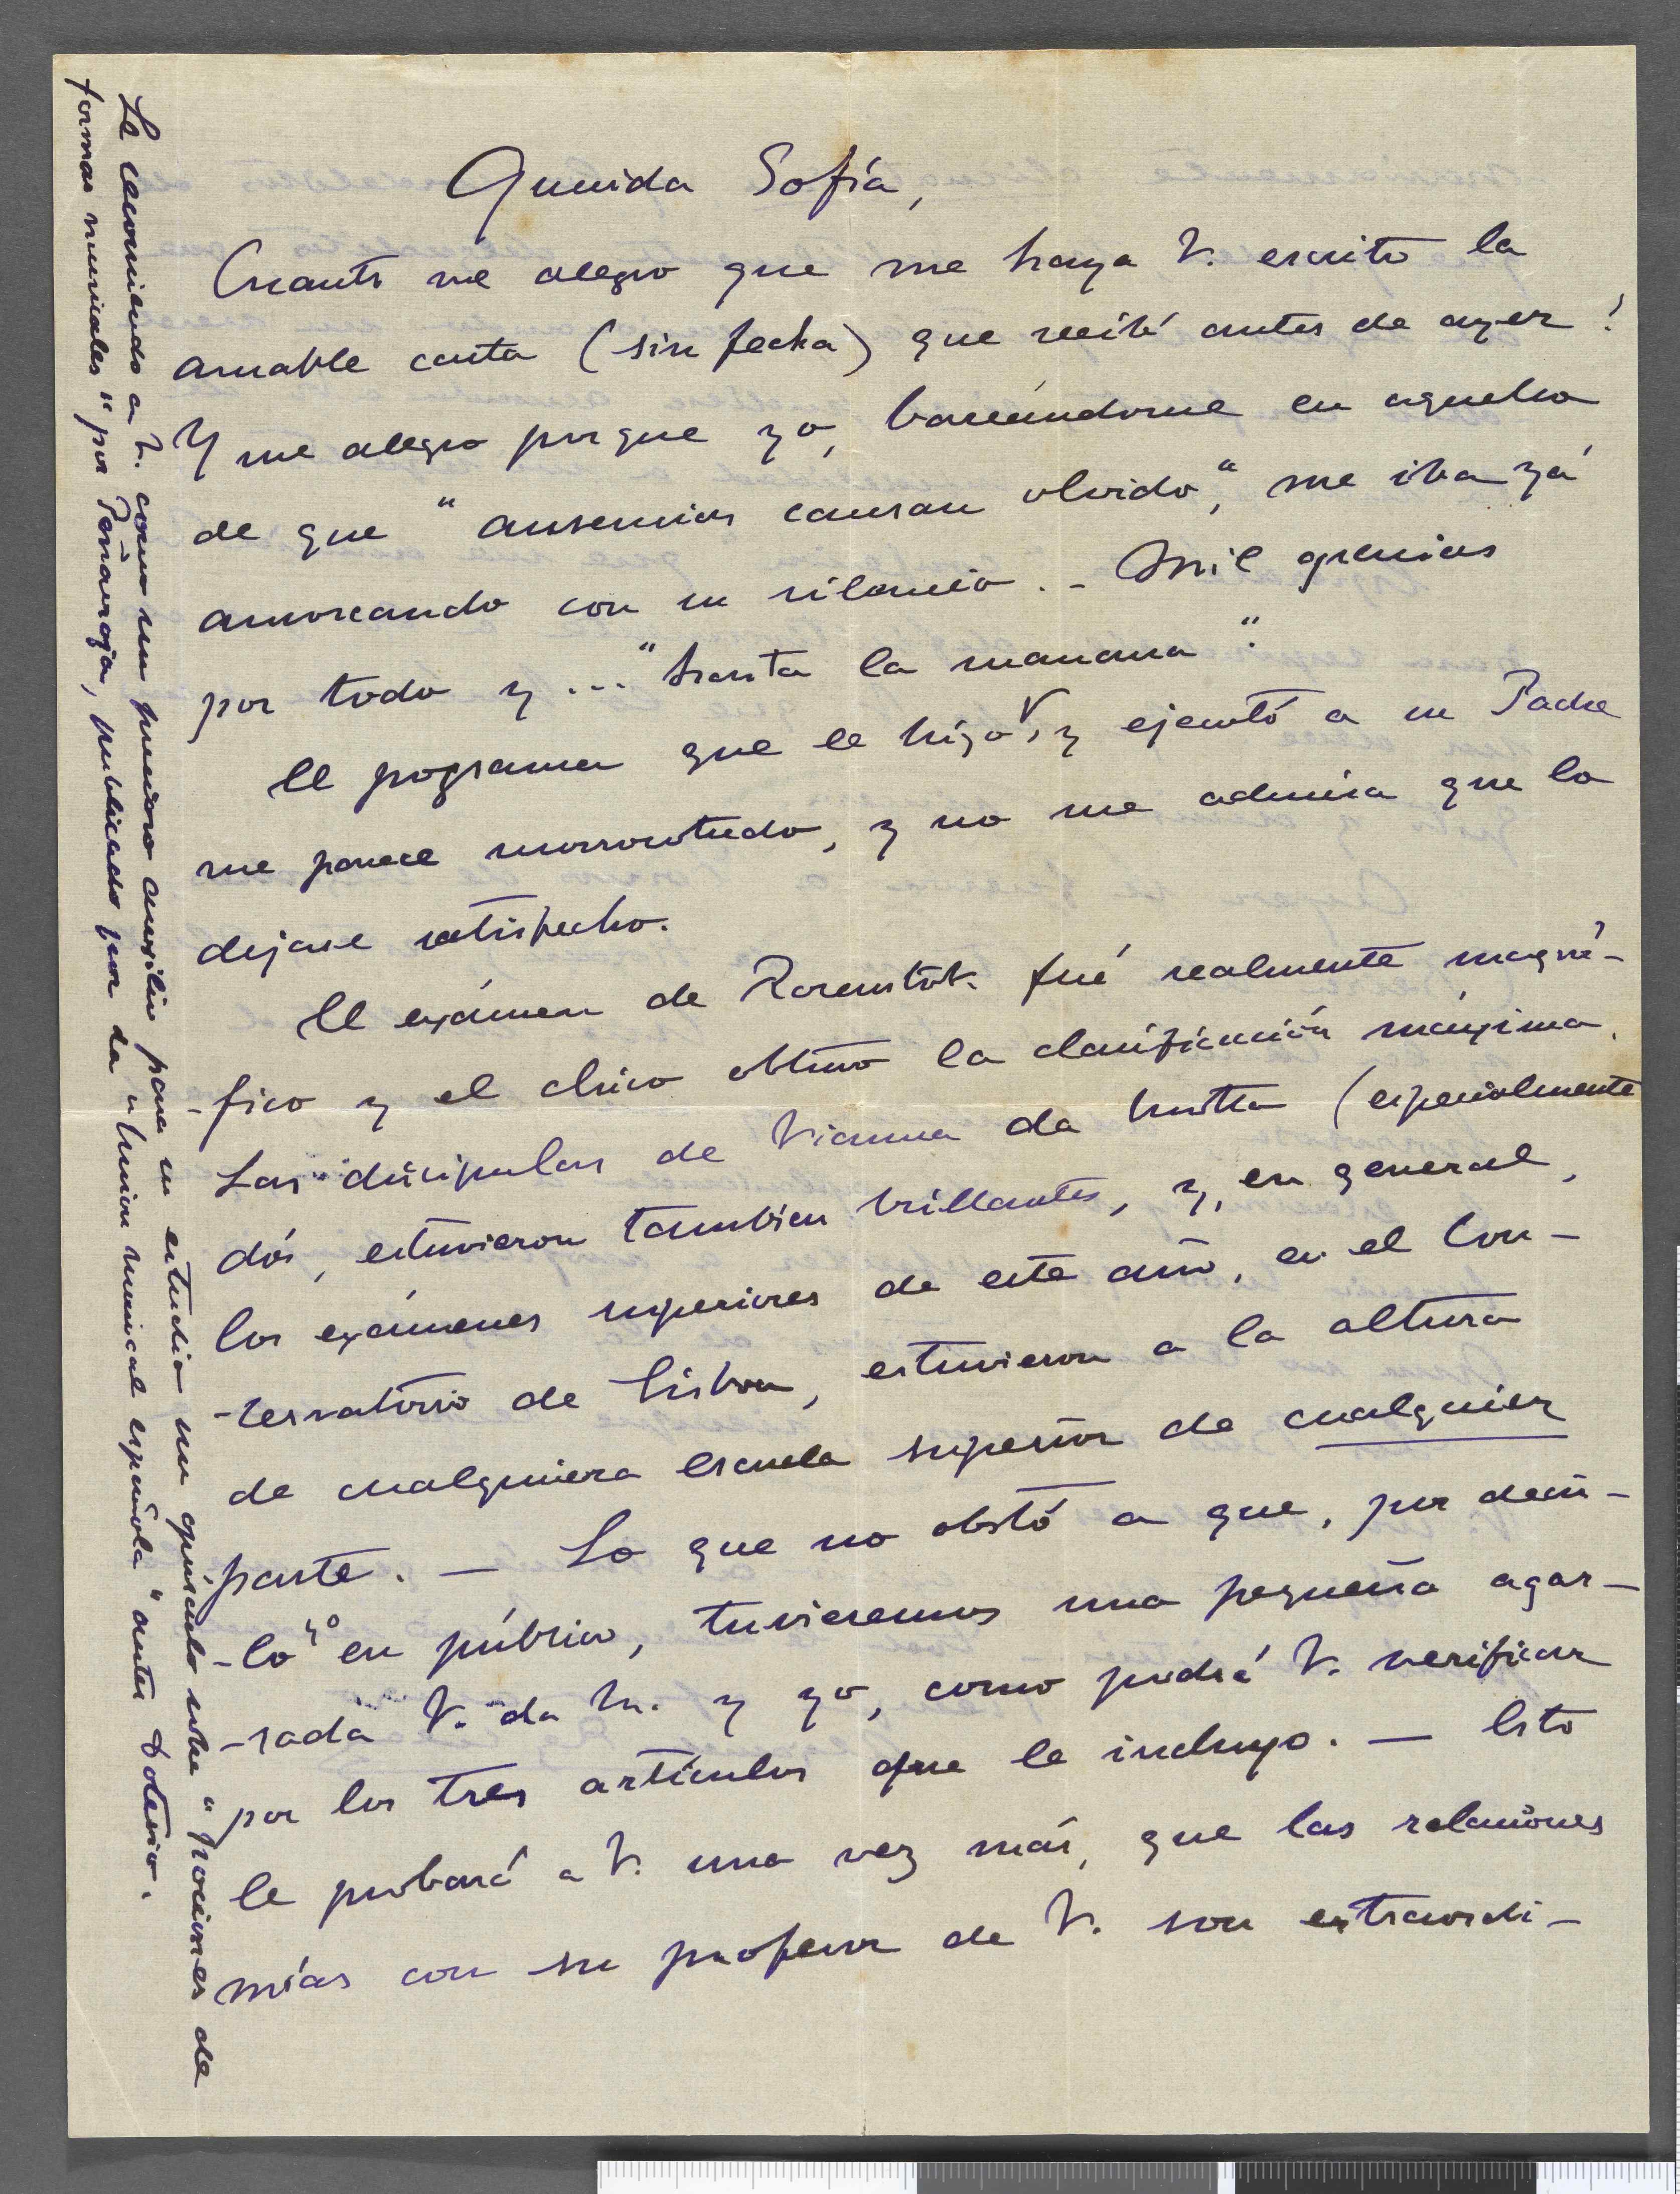 Querida Sofía,
Cuanto me alegro que me haya V. escrito la
amable carta (sin fecha) que recibí antes de ayer!
Y me alegro porque yo, baseándome en aquello
de que "ausencias causan olvido", me iba yá
amoscando con su silencio. - Mil gracias
por todo y ... "hasta la manana".
El pograma que le hizo V, y ejecutó a su Padre
me parece morrocotudo, y no me admira que lo
dejase satisfecho.
El exámen de Rosenstok fué realmente magní-
-fico y el chico obtuvo la clasificación máxima.
Las discipulas de Vianna da Motta (especialmente
dós, estuvieron tambien brillantes, y, en general,
los exámenes superiores de este año, en el Con-
-servatorio de Lisboa, estuvieron a la altura
de cualquiera escuela superior de cualquier
parte. — Lo que no obstó a que, por decir-
-lo así en público, tuvieremos una pequeña agar-
-rada V. da M. y yo, como podrá V. verificar
por los tres artículos que le incluyo. — Esto
le probará a V. una vez más, que las relaciones
mías con su profesor de V. son extraordi-
Le recomiendo a V. como un precioso auxilio para su estudio un opúsculo sobre "nociones de
formas musicales" por Peñarroja, publicado por la "Union musical española" antes Dotesio.